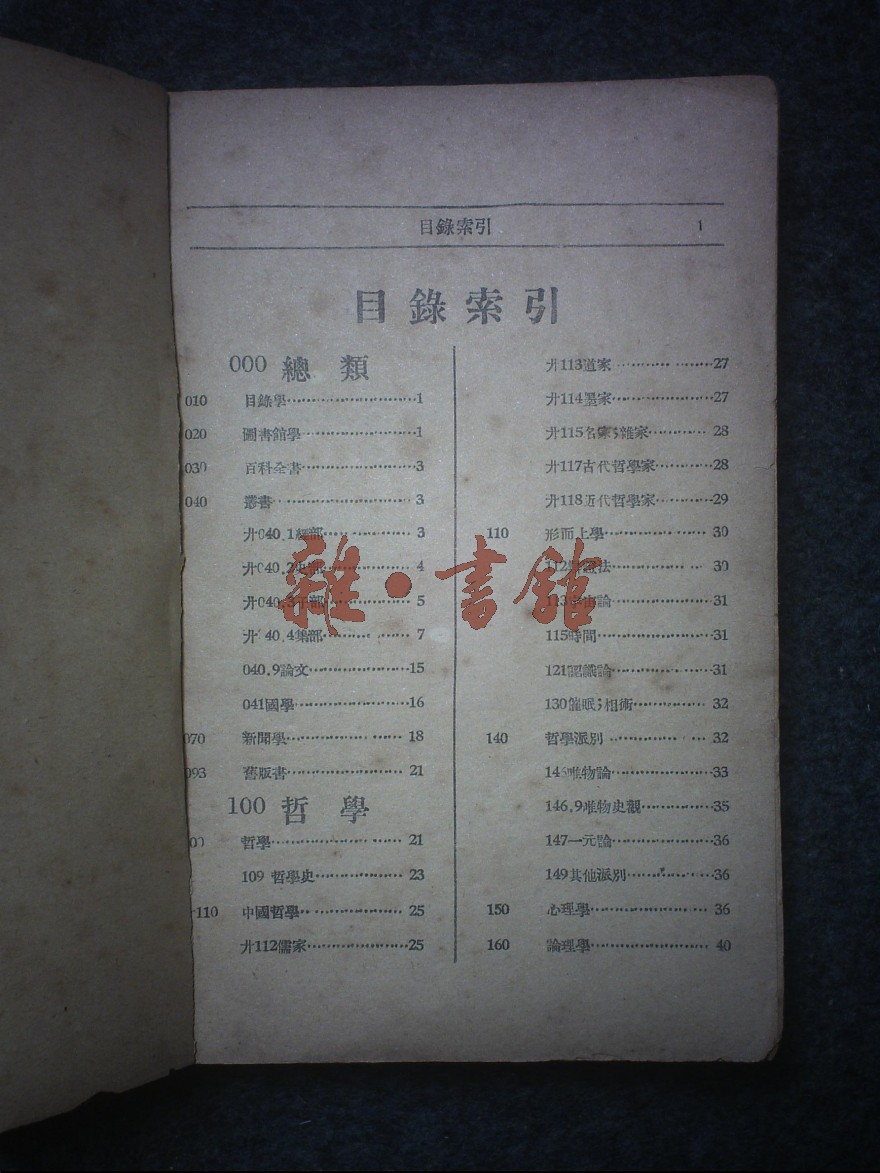 目錄索引 1
目錄索引
000 總類
010 目錄學 1
020 圖書館學 1
030 百科全書 3
040 叢書 3
廾040.1經部 3
廾040.2史部 4
廾040.3子部 5
廾 40.4集部 7
040.9論文 15
041國學 16
070 新聞學 18
093 舊版書 21
100 哲學
00 哲學 21
109 哲學史 23
110 中國哲學 25
廾112儒家 25
廾113道家 27
廾114墨家 27
廾115名家;雜家 28
廾117古代哲學家 28
廾118近代哲學家 29
110 形而上學 30
112辯證法 30
113宇宙論 31
115時間 31
121認識論 31
130催眠;相術 32
140 哲學派別 32
146唯物論 33
146.9唯物史觀 35
147一元論 36
149其他派別 36
150 心理學 36
160 論理學 40
雜·書館